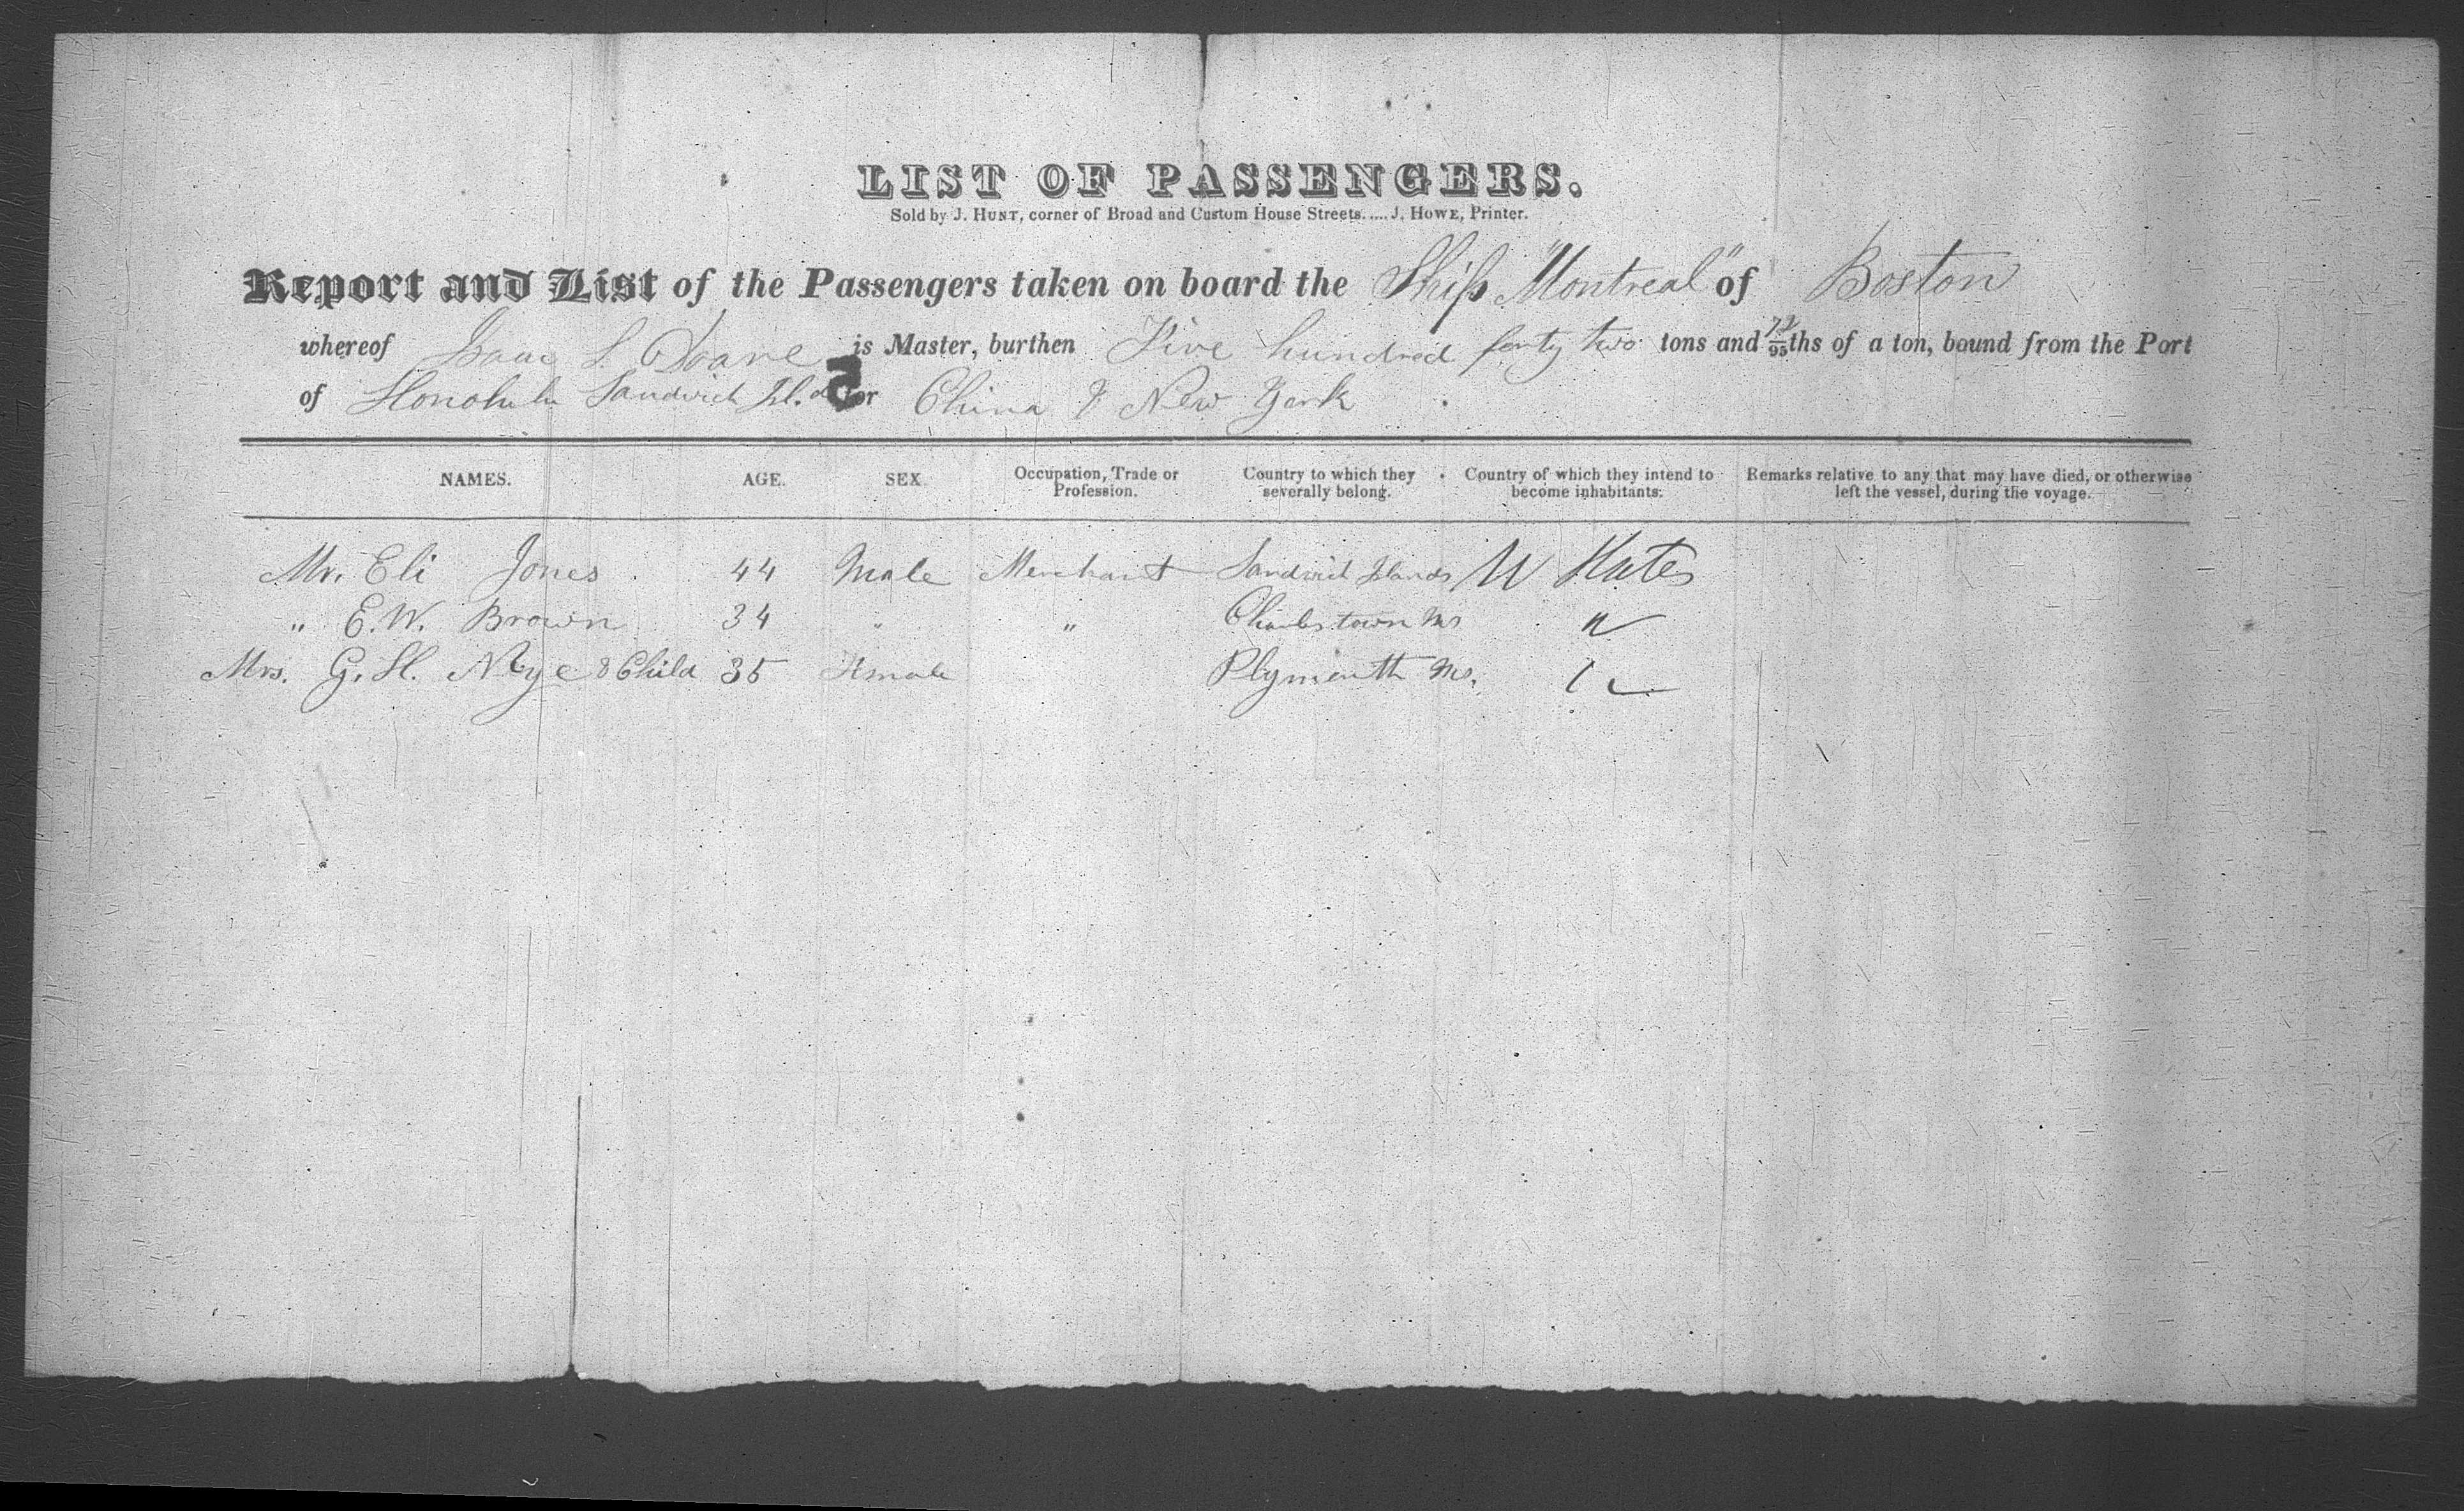 LIST OF PASSENGERS.
Sold by J. HUNT, corner of Broad and Custom House Streets.....J. HOWE, Printer.
Report and List of the Passengers taken on board the Ship "Montreal" of Boston
whereof Isaac S. Doane is Master, burthen Five hundred forty two tons and 72/95ths of a ton, bound from the Port
of Honolulu Sandwich Isl.ds for China & New York
5
NAMES. AGE. SEX Occupation, Trade or Profession. Country to which they severally belong. Country of which they intend to become inhabitants. Remarks relative to any that may have died, or otherwise left the vessel, during the voyage.
Mr. Eli Jones 44 Male Merchant Sandwich Islands U States
" E. W. Brown 34 " " Charlestown Ms "
Mrs. G. H. Nye & Child 35 Female Plymouth Ms.